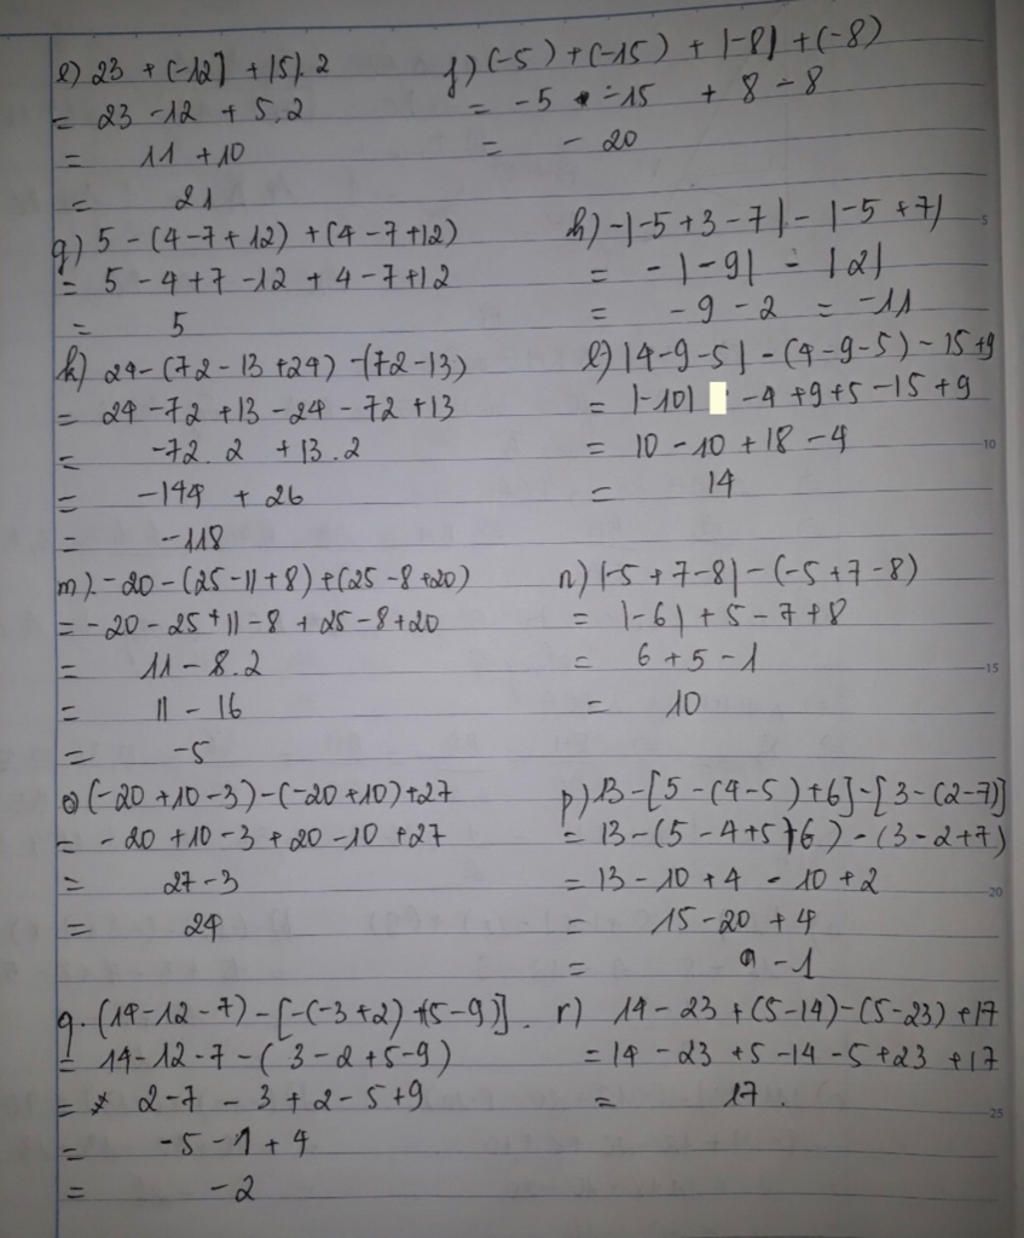 e) 23 + (-12) + |5|.2
= 23 - 12 + 5.2
= 11 + 10
= 21
f) (-5) + (-15) + |-8| + (-8)
= -5 - 15 + 8 - 8
= - 20
g) 5 - (4 - 7 + 12) + (4 - 7 + 12)
= 5 - 4 + 7 - 12 + 4 - 7 + 12
= 5
h) -|-5 + 3 - 7| - |-5 + 7|
= - |-9| - |2|
= -9 - 2 = -11
k) 24 - (72 - 13 + 24) - (72 - 13)
= 24 - 72 + 13 - 24 - 72 + 13
= -72.2 + 13.2
= -144 + 26
= -118
l) |4 - 9 - 5| - (4 - 9 - 5) - 15 + 9
= |-10| - 4 + 9 + 5 - 15 + 9
= 10 - 10 + 18 - 4
= 14
m) -20 - (25 - 11 + 8) + (25 - 8 + 20)
= -20 - 25 + 11 - 8 + 25 - 8 + 20
= 11 - 8.2
= 11 - 16
= -5
n) |-5 + 7 - 8| - (-5 + 7 - 8)
= |-6| + 5 - 7 + 8
= 6 + 5 - 1
= 10
o) (-20 + 10 - 3) - (-20 + 10) + 27
= -20 + 10 - 3 + 20 - 10 + 27
= 27 - 3
= 24
p) 13 - [5 - (4 - 5) + 6] - [3 - (2 - 7)]
= 13 - (5 - 4 + 5 + 6) - (3 - 2 + 7)
= 13 - 10 + 4 - 10 + 2
= 15 - 20 + 4
= - 1
q. (14 - 12 - 7) - [-(-3 + 2) + (5 - 9)].
= 14 - 12 - 7 - (3 - 2 + 5 - 9)
= 2 - 7 - 3 + 2 - 5 + 9
= -5 - 1 + 4
= -2
r) 14 - 23 + (5 - 14) - (5 - 23) + 17
= 14 - 23 + 5 - 14 - 5 + 23 + 17
= 17.
5
10
15
20
25